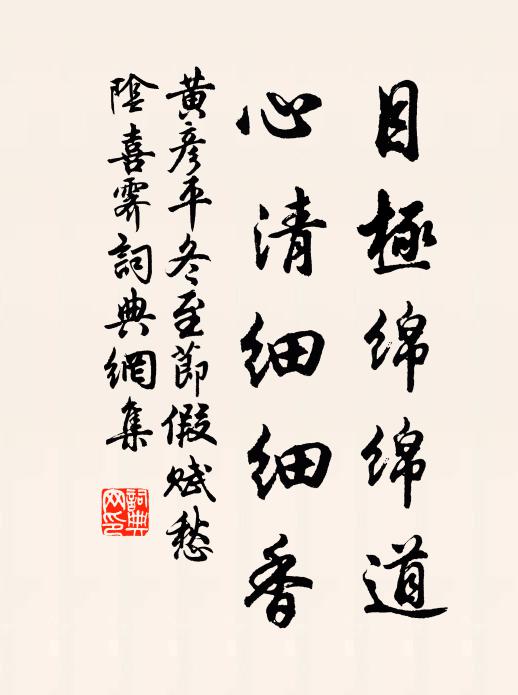 目極綿綿道
心清細細香
黃彥平冬至節假賦愁
陰喜霽詞典網集
詞典
网印